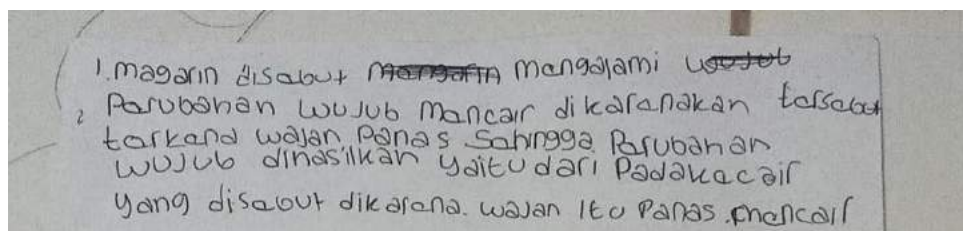 1. magarin disabut mengalami
2 Parubahan wujub mancair dikaranakan tarsabut
tarkana wajan Panas Sahingga Parubahan
wujub dihasilkan yaitu dari Padakacair
yang disabut dikarana. wajan itu Panas. mencair